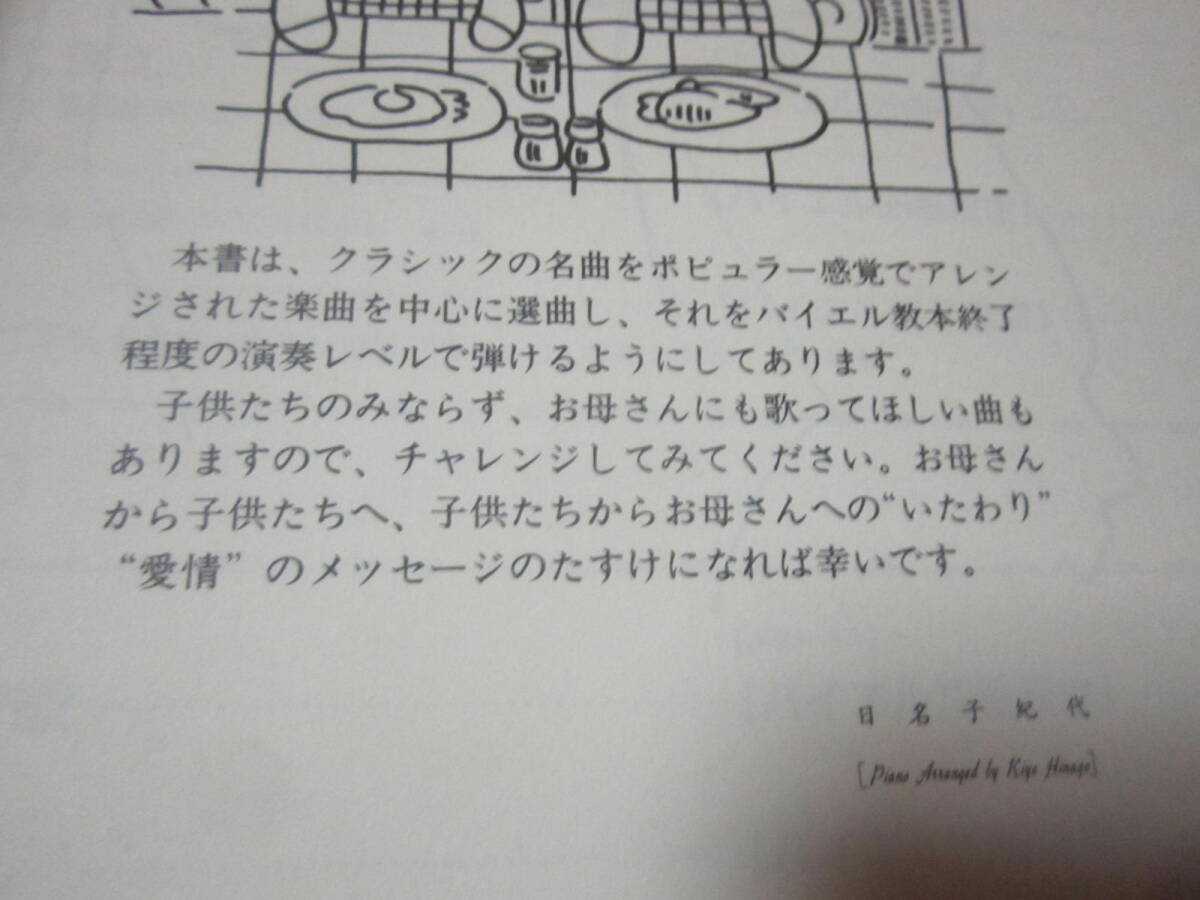 本書は、クラシックの名曲をポピュラー感覚でアレン
ジされた楽曲を中心に選曲し、それをバイエル教本終了
程度の演奏レベルで弾けるようにしてあります。
子供たちのみならず、お母さんにも歌ってほしい曲も
ありますので、チャレンジしてみてください。お母さん
から子供たちへ、子供たちからお母さんへの“いたわり”
“愛情”のメッセージのたすけになれば幸いです。
日名子紀代
[Piano Arranged by Kiyo Hinago]